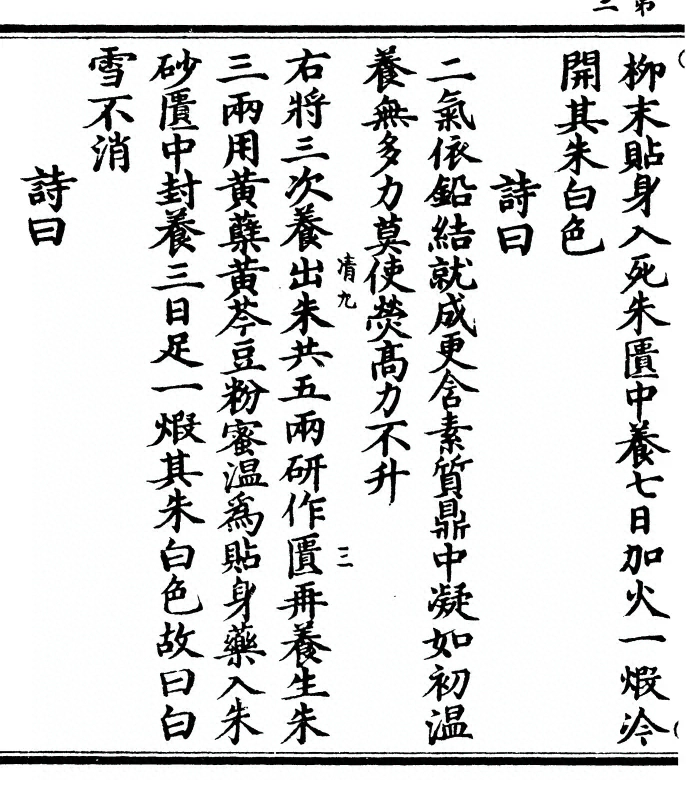 柳末貼身入死朱匱中養七日加火一煆冷
開其朱白色
詩曰
二氣依鉛結就成更含素質鼎中凝如初溫
養無多力莫使熒高力不升
右將三次養出朱共五兩研作匱再養生朱
三兩用黃蘗黃芩豆粉蜜温爲貼身藥入朱
砂匱中封養三日足一煆其朱白色故曰白
雪不消
詩曰
清九
三